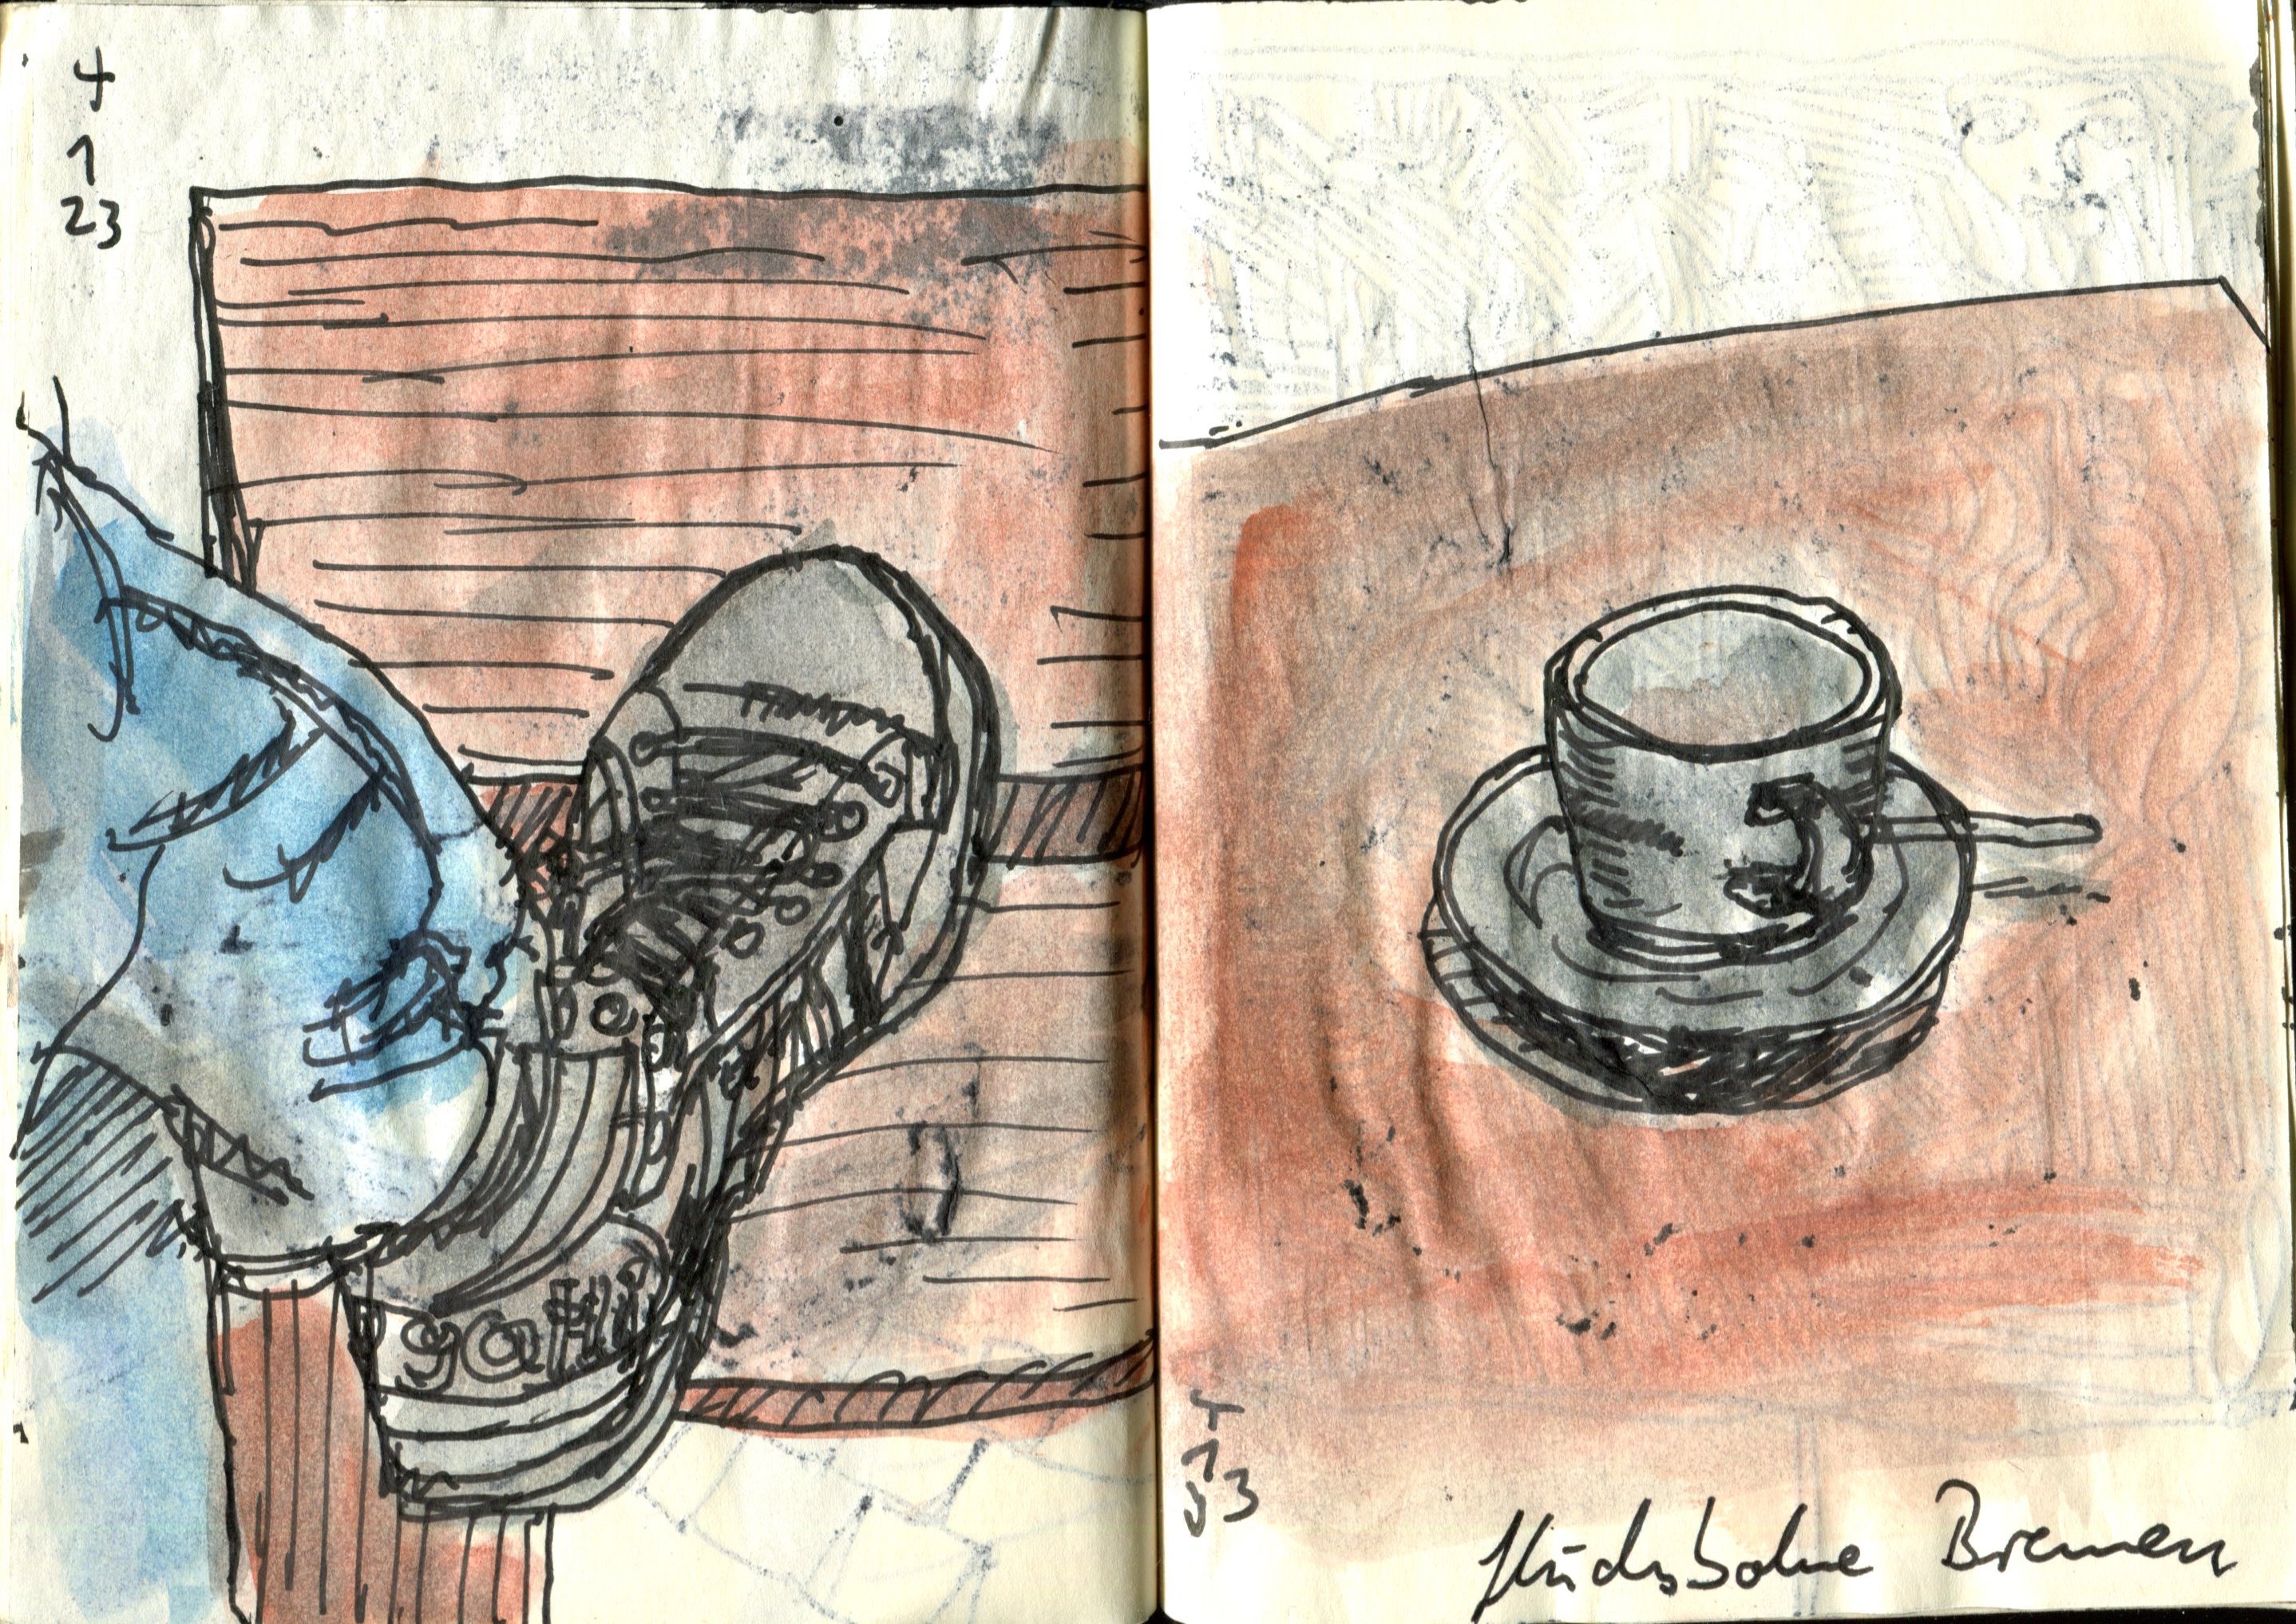 4
1
23
4
1
23
glücksbohne Bremen